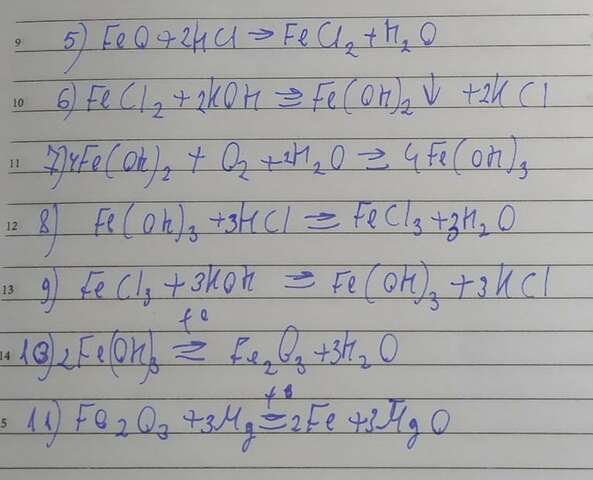 9 5) FeO + 2HCl → FeCl₂ + H₂O
10 6) FeCl₂ + 2KOH = Fe(OH)₂ ↓ + 2KCl
11 7) 4Fe(OH)₂ + O₂ + 2H₂O = 4Fe(OH)₃
12 8) Fe(OH)₃ + 3HCl = FeCl₃ + 3H₂O
13 9) FeCl₃ + 3KOH = Fe(OH)₃ + 3KCl
t°
14 10) 2Fe(OH)₃ = Fe₂O₃ + 3H₂O
t°
5 11) Fe₂O₃ + 3Mg = 2Fe + 3MgO